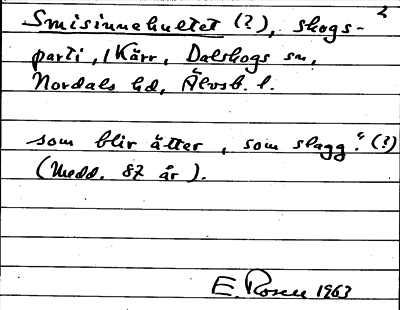 2
Smisinnehultet (?), skogs-
parti, i Kärr, Dalskogs sn,
Nordals hd, Älvsb. l.
som blir åtter, som slagg." (?)
(Medd. 87 år).
E. Rosell 1963